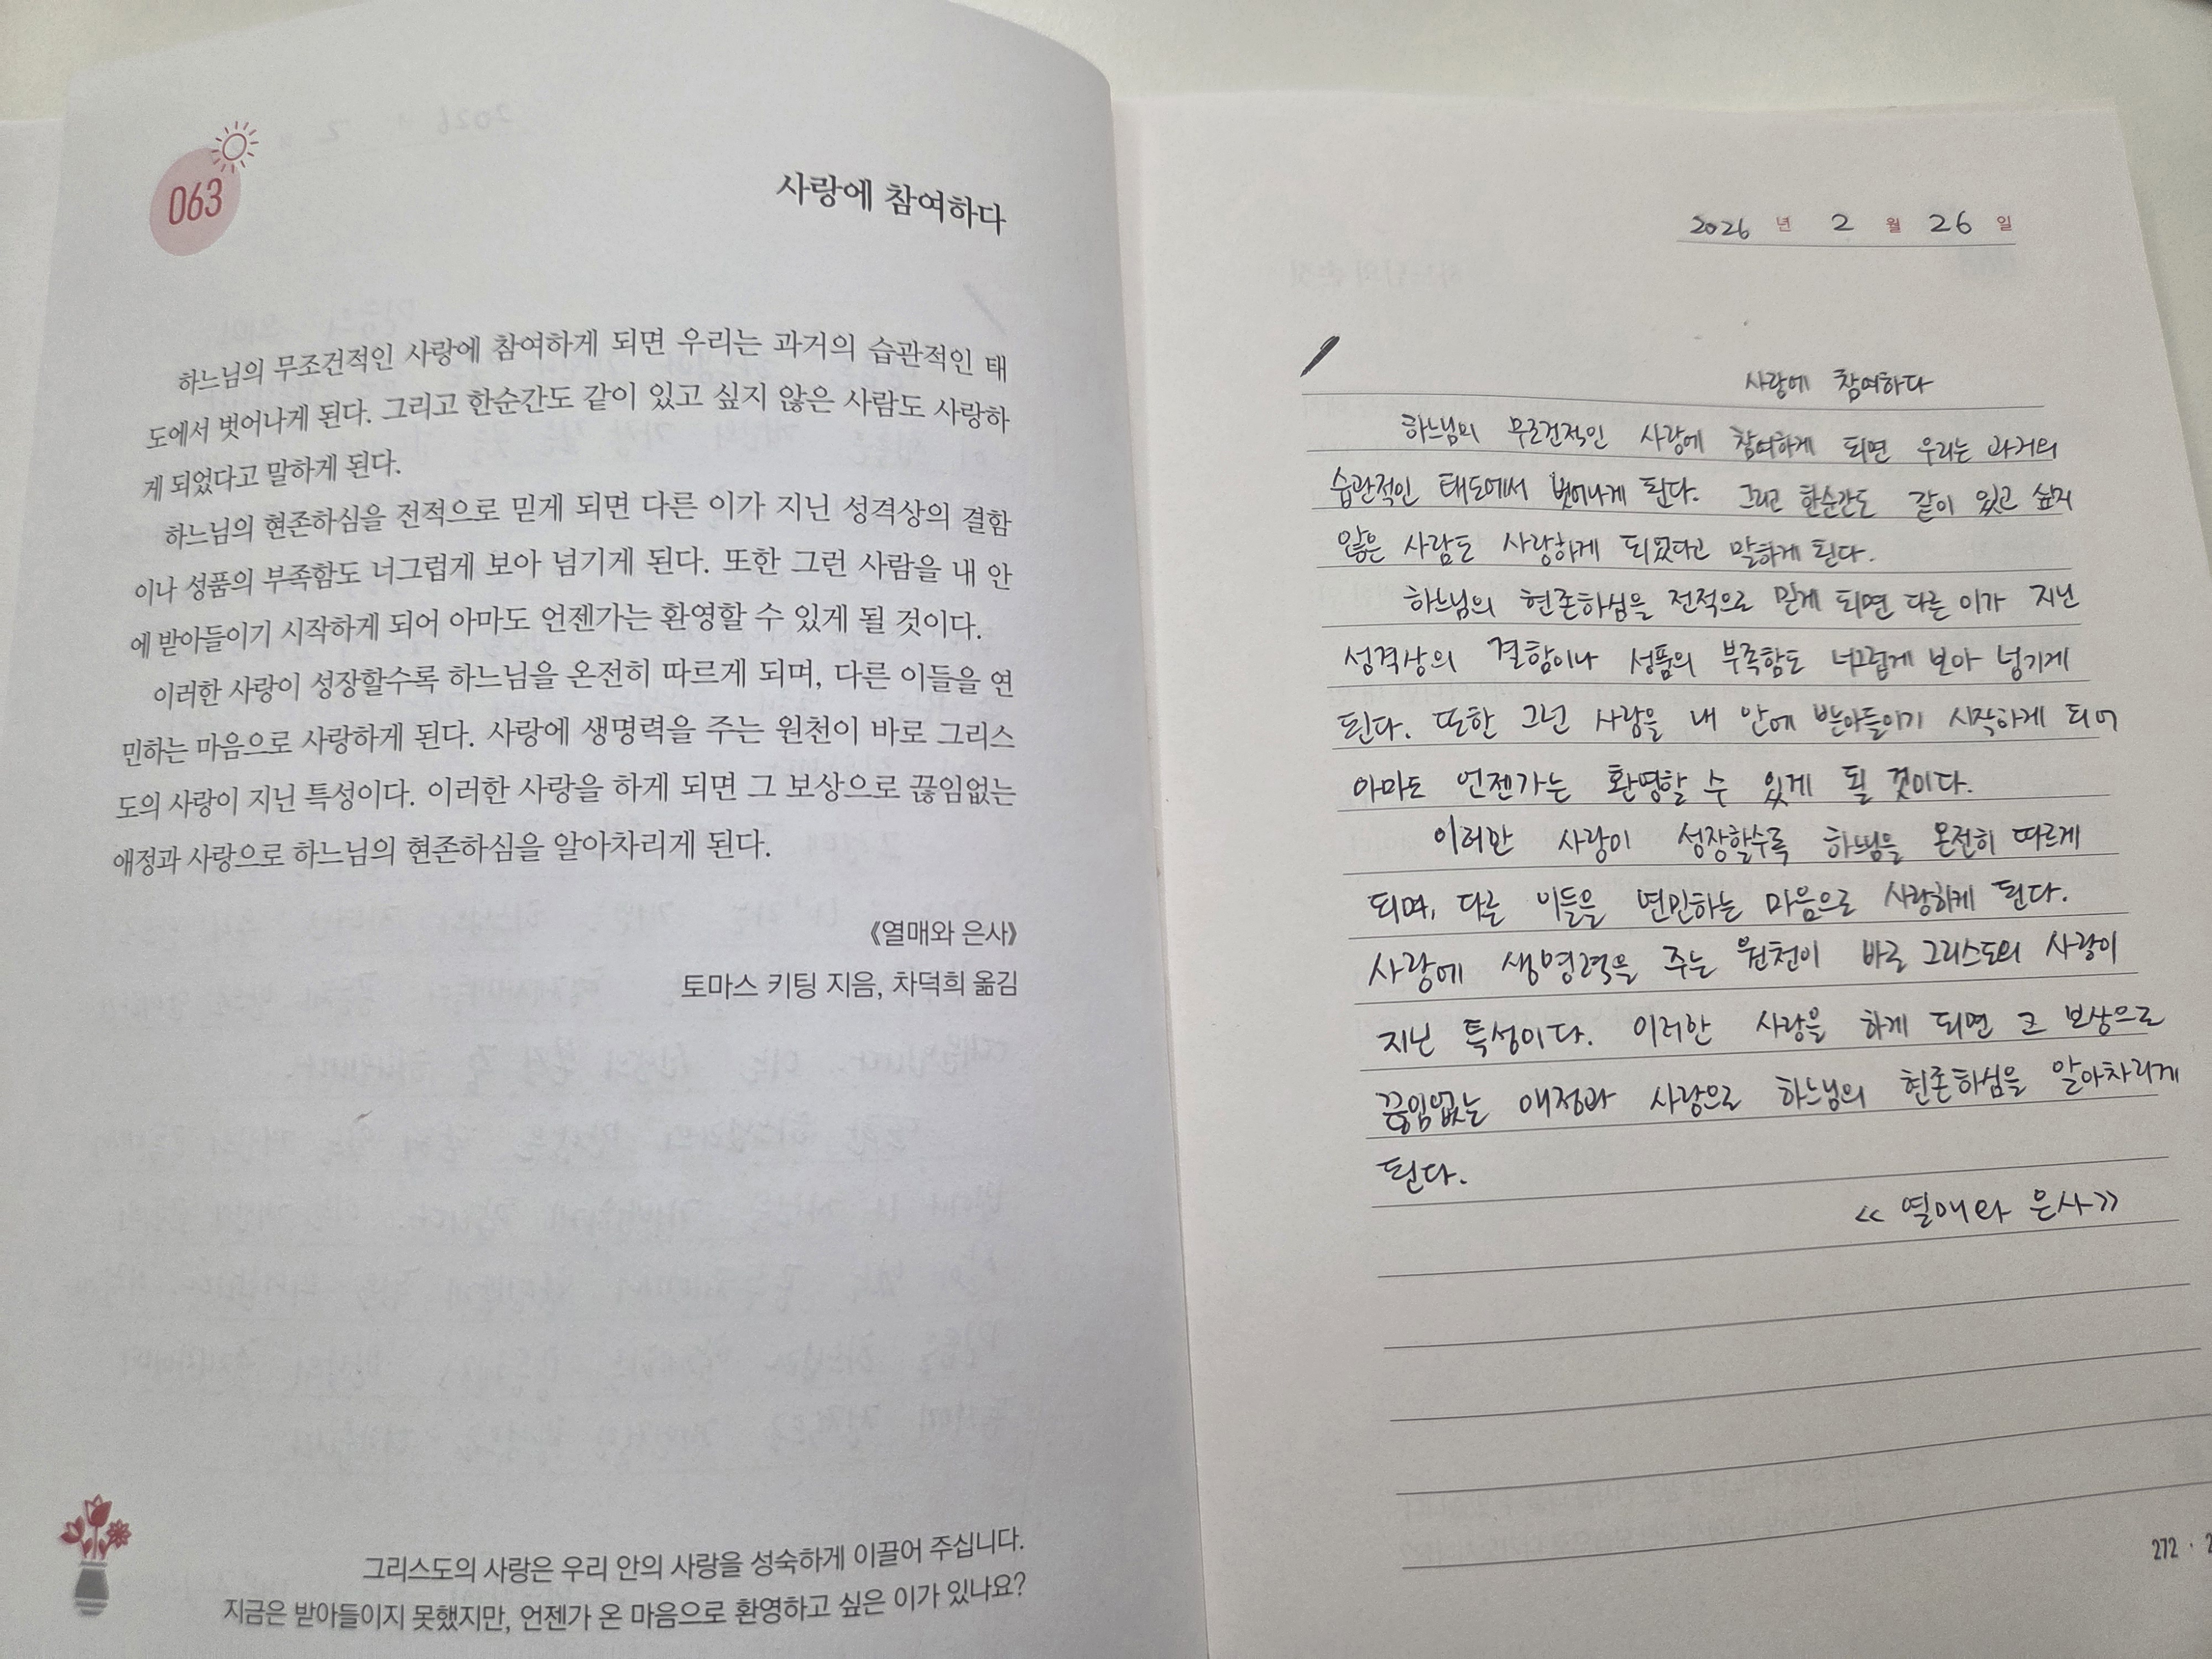 063
사랑에 참여하다
하느님의 무조건적인 사랑에 참여하게 되면 우리는 과거의 습관적인 태
도에서 벗어나게 된다. 그리고 한순간도 같이 있고 싶지 않은 사람도 사랑하
게 되었다고 말하게 된다.
하느님의 현존하심을 전적으로 믿게 되면 다른 이가 지닌 성격상의 결함
이나 성품의 부족함도 너그럽게 보아 넘기게 된다. 또한 그런 사람을 내 안
에 받아들이기 시작하게 되어 아마도 언젠가는 환영할 수 있게 될 것이다.
이러한 사랑이 성장할수록 하느님을 온전히 따르게 되며, 다른 이들을 연
민하는 마음으로 사랑하게 된다. 사랑에 생명력을 주는 원천이 바로 그리스
도의 사랑이 지닌 특성이다. 이러한 사랑을 하게 되면 그 보상으로 끊임없는
애정과 사랑으로 하느님의 현존하심을 알아차리게 된다.
《열매와 은사》
토마스 키팅 지음, 차덕희 옮김
그리스도의 사랑은 우리 안의 사랑을 성숙하게 이끌어 주십니다.
지금은 받아들이지 못했지만, 언젠가 온 마음으로 환영하고 싶은 이가 있나요?
2026 년 2 월 26 일
사랑에 참여하다
하느님의 무조건적인 사랑에 참여하게 되면 우리는 과거의
습관적인 태도에서 벗어나게 된다. 그리고 한순간도 같이 있고 싶지
않은 사람도 사랑하게 되었다고 말하게 된다.
하느님의 현존하심을 전적으로 믿게 되면 다른 이가 지닌
성격상의 결함이나 성품의 부족함도 너그럽게 보아 넘기게
된다. 또한 그런 사람을 내 안에 받아들이기 시작하게 되어
아마도 언젠가는 환영할 수 있게 될 것이다.
이러한 사랑이 성장할수록 하느님을 온전히 따르게
되며, 다른 이들을 연민하는 마음으로 사랑하게 된다.
사랑에 생명력을 주는 원천이 바로 그리스도의 사랑이
지닌 특성이다. 이러한 사랑을 하게 되면 그 보상으로
끊임없는 애정과 사랑으로 하느님의 현존하심을 알아차리게
된다.
<< 열매와 은사>>
272 ·